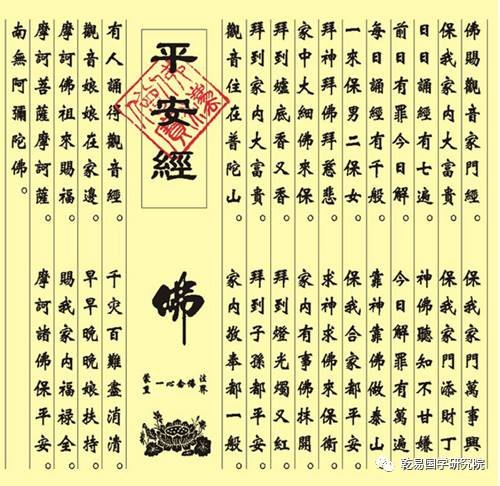 佛賜觀音家門經。 保我家門萬事興。
保我家內大富貴。 保我家門添財丁。
日日誦經有七遍。 神佛聽知不甘嫌。
前日有罪今日解。 今日解罪有萬遍。
每日誦經有千般。 靠神靠佛做泰山。
一來保男二保女。 保我合家都平安。
拜神拜佛拜慈悲。 求神求佛來保衛。
家中大細佛來保。 家內有事佛抹開。
拜到爐底香又香。 拜到燈光燭又紅。
拜到家內大富貴。 拜到子孫都平安。
觀音住在普陀山。 家內敬奉都一般。
平安經
佛
法界
一心念佛
有人誦得觀音經。 千災百難盡消清。
觀音娘娘在家邊。 早早晚晚娘扶持。
摩訶佛祖來賜福。 賜我家內福祿全。
摩訶菩薩摩訶薩。 摩訶諸佛保平安。
南無阿彌陀佛。
乾易国学研究院